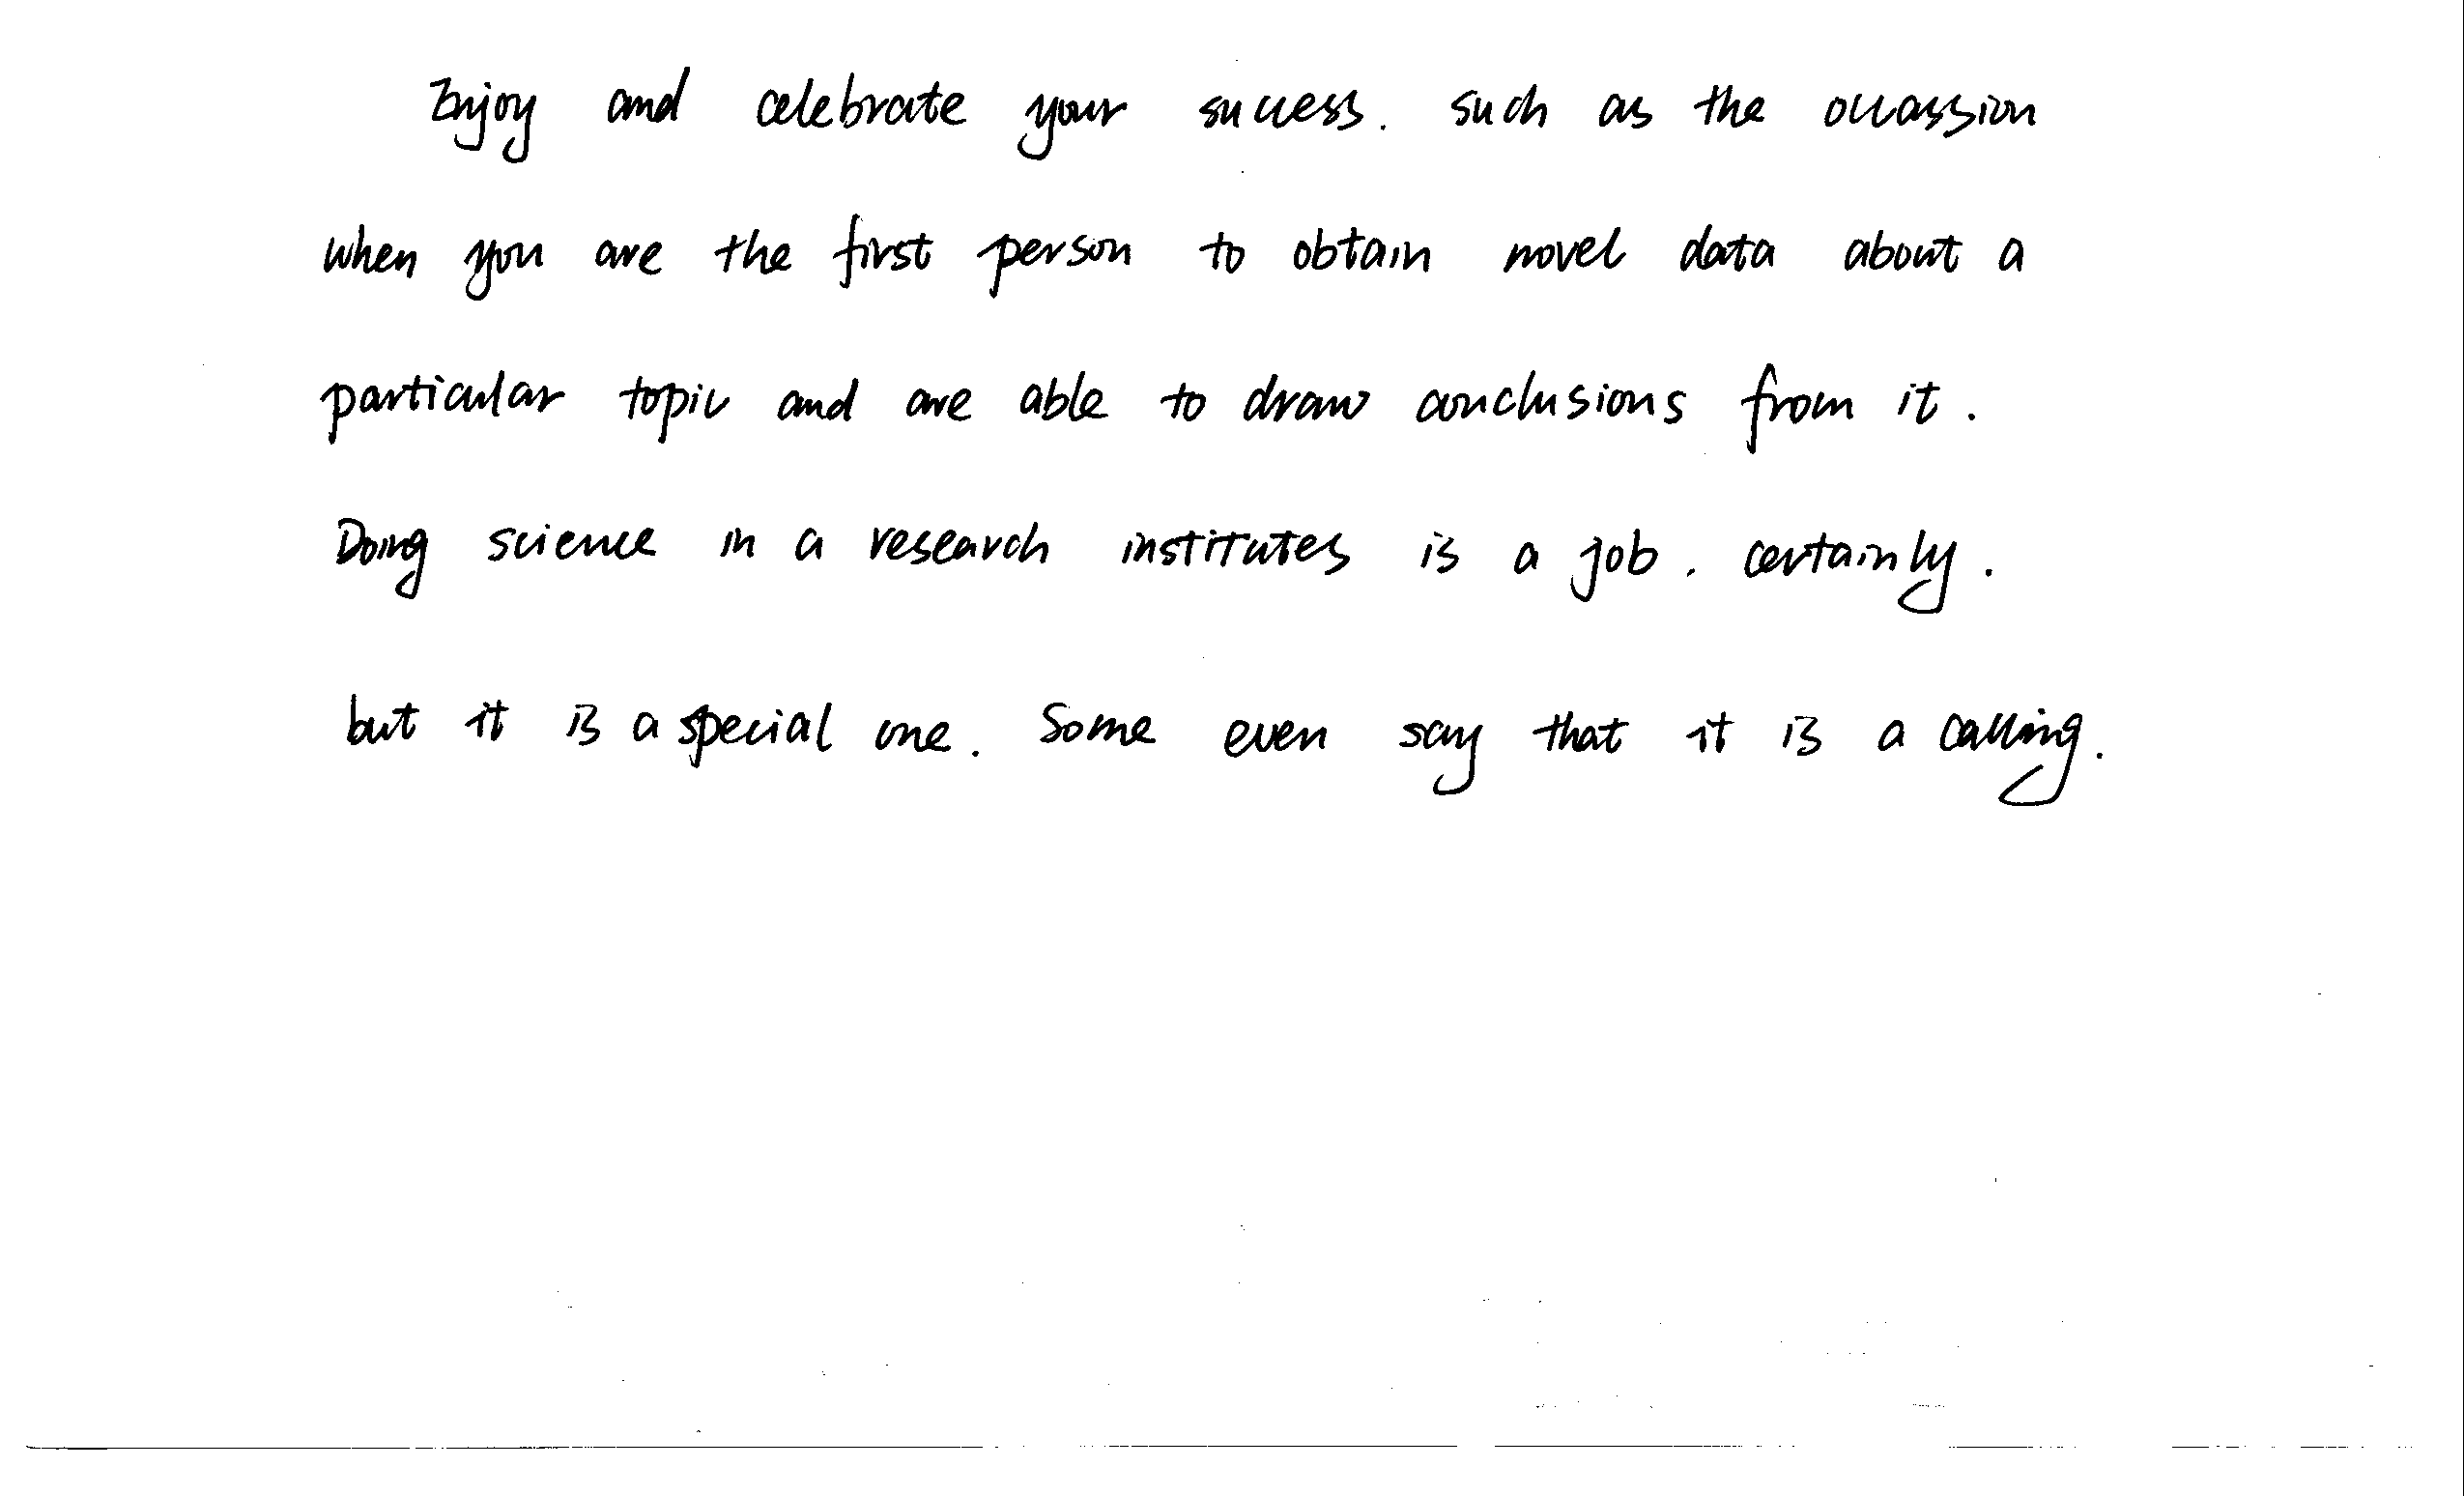 Enjoy and celebrate your success. such as the occassion
when you are the first person to obtain novel data about a
particular topic and are able to draw conclusions from it.
Doing science in a research institutes is a job. certainly.
but it is a special one. Some even say that it is a calling.